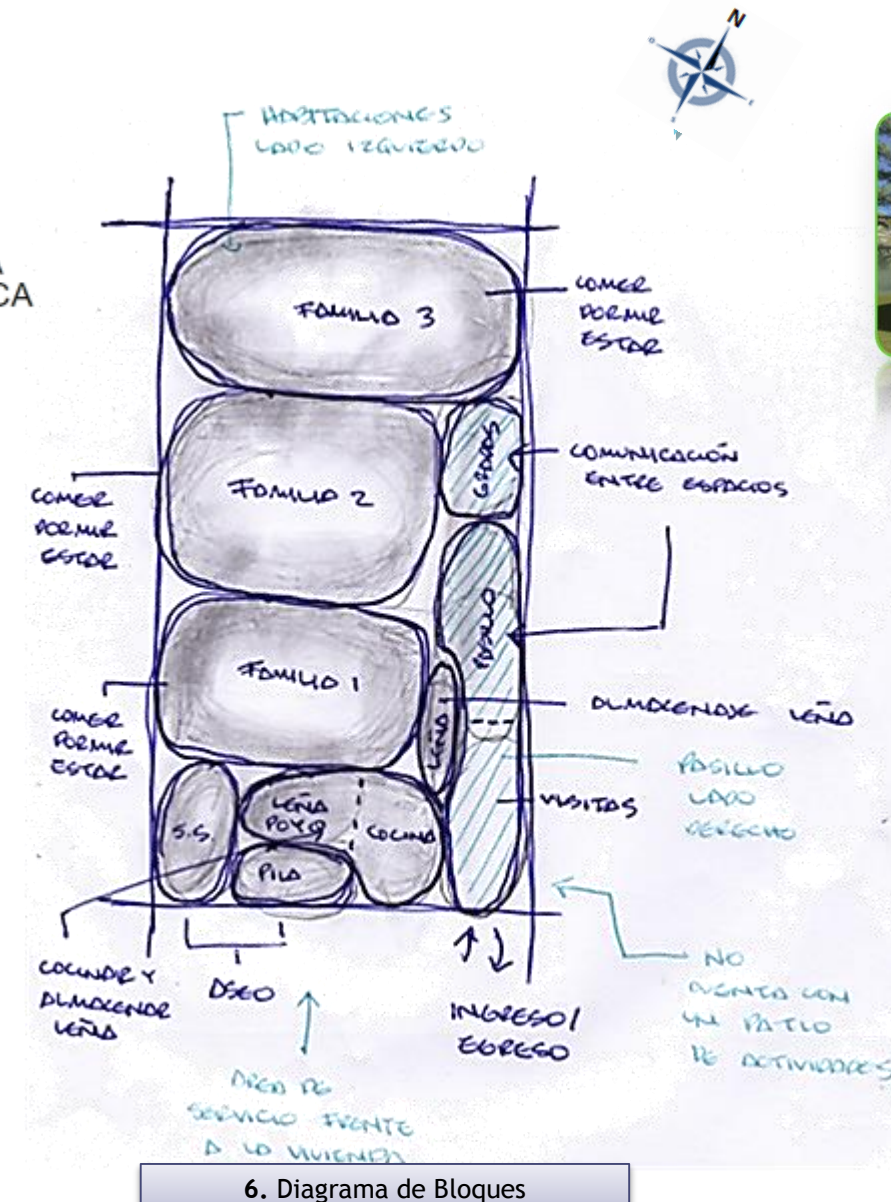 N
HABITACIONES
LADO IZQUIERDO
A
CA
FAMILIA 3
COMER
DORMIR
ESTAR
GRADAS
COMUNICACIÓN
ENTRE ESPACIOS
FAMILIA 2
COMER
DORMIR
ESTAR
PASILLO
FAMILIA 1
COMER
DORMIR
ESTAR
LEÑA
ALMACENAJE LEÑA
PASILLO
LADO
DERECHO
VISITAS
S.S.
LEÑA
POYO
COCINA
PILA
COCINAR Y
ALMACENAR
LEÑA
ASEO
INGRESO/
EGRESO
NO
CUENTA CON
UN PATIO
DE ACTIVIDADES
AREA DE
SERVICIO FRENTE
A LA VIVIENDA
6. Diagrama de Bloques